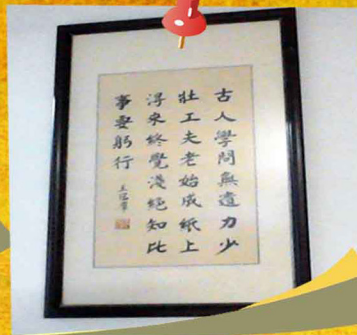 古人學問無遺力少
壯工夫老始成紙上
得来終覺淺絕知此
事要躬行